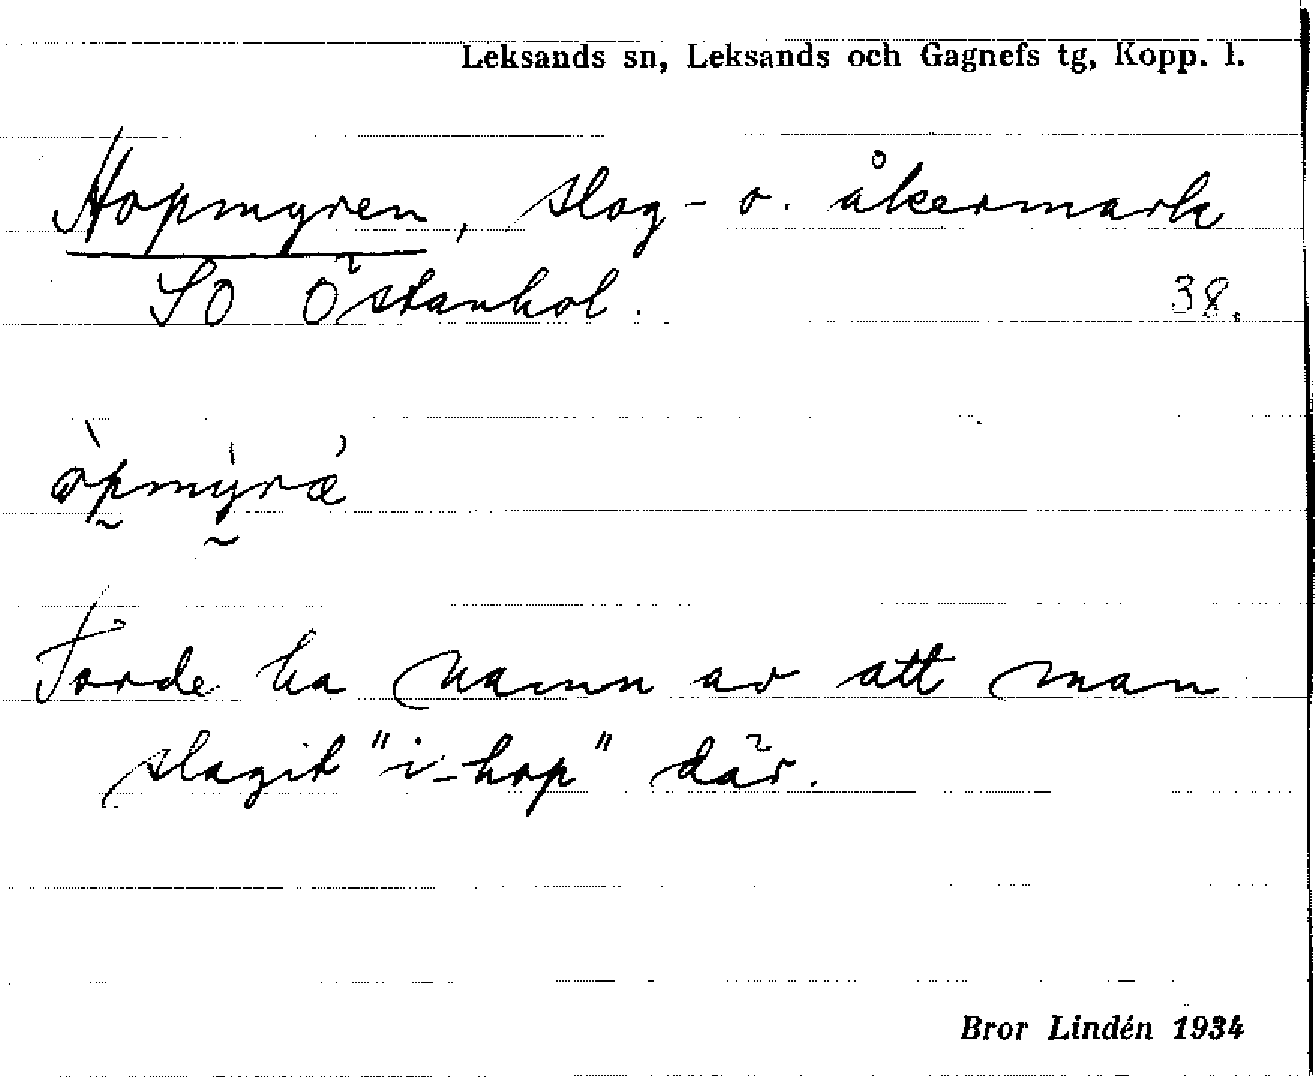 Leksands sn, Leksands och Gagnefs tg, Kopp. l.
Hopmyren, slog- o. åkermark
SO Östanhol. 38.
òpmỳrǽ
Torde ha namn av att man
slagit "i-hop" där.
Bror Lindén 1934